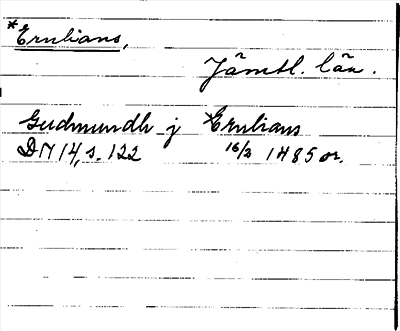 *Ernlians,
Jämtl. län.
Gudmundh j *Ernlians
DN 14, s. 122 16/2 1485 or.